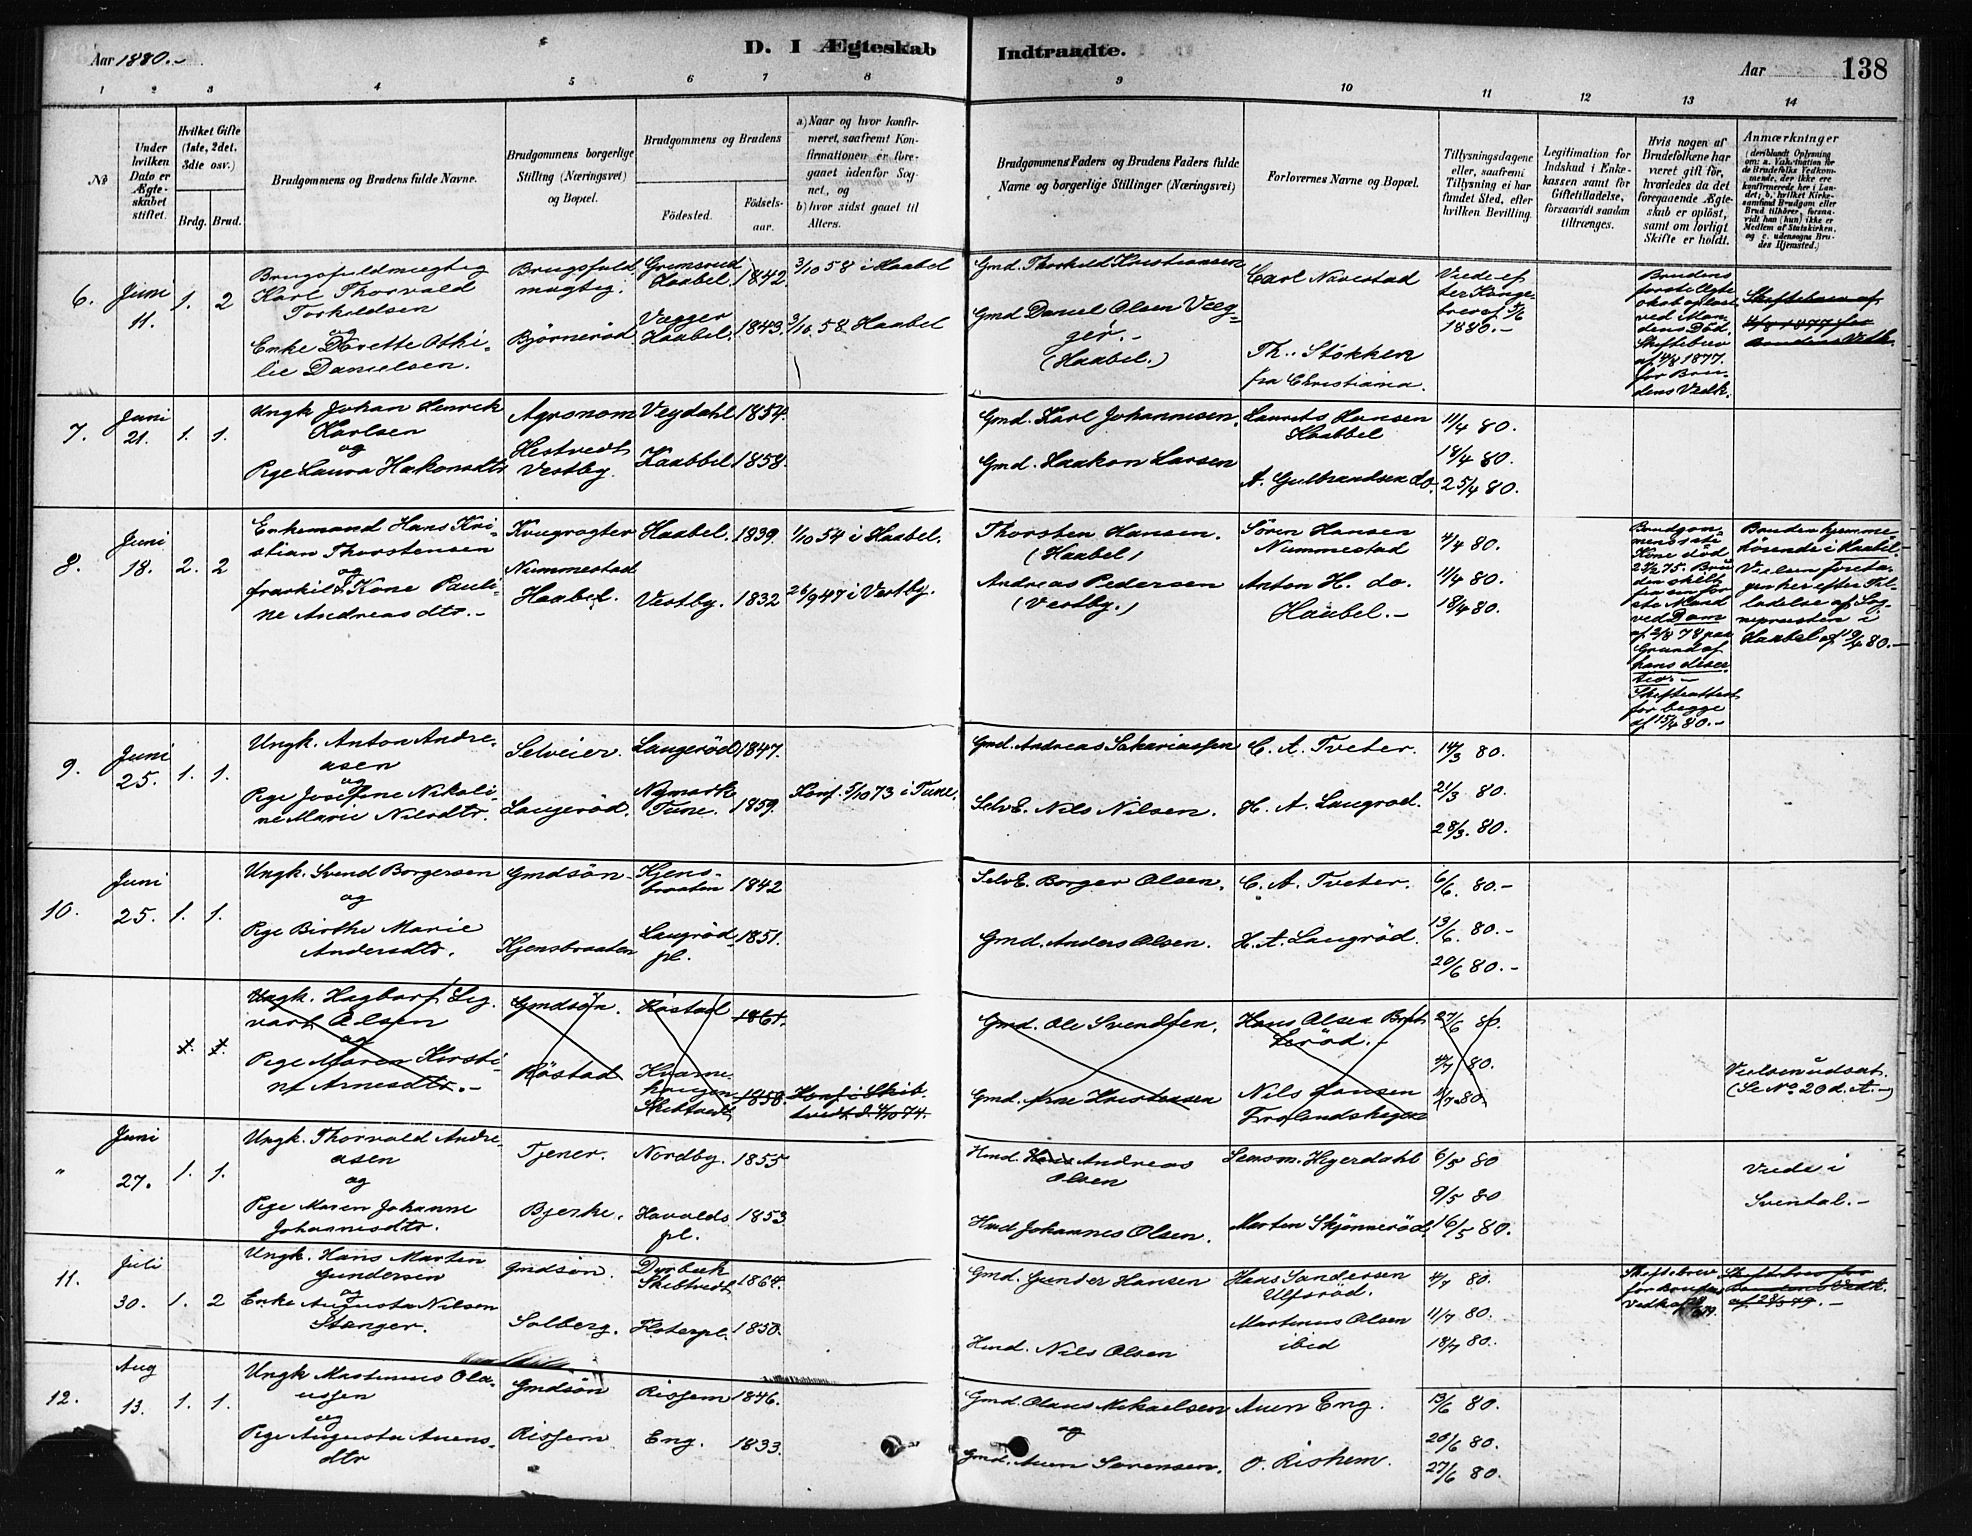 Aar 1880.-
D. I Ægteskab
Indtraadte.
Aar
138
1 2 3 4 5 6 7 8 9 10 11 12 13 14
No
Under
hvilken
Dato er
Ægte-
skabet
stiftet.
Hvilket Gifte
(1ste, 2det,
3die osv.)
Brdg. Brud.
Brudgommens og Brudens fulde Navne.
Brudgommens borgerlige
Stilling (Næringsvei)
og Bopæl.
Brudgommens og Brudens
Fødested.
Fødsels-
aar.
a) Naar og hvor konfir-
meret, saafremt Kon-
firmationen er fore-
gaaet udenfor Sog-
net, og
b) hvor sidst gaaet til
Alters.
Brudgommens Faders og Brudens Faders fulde
Navne og borgerlige Stillinger (Næringsvei)
Forlovernes Navne og Bopæl.
Tillysningsdagene
eller, saafremt
Tillysning ei har
fundet Sted, efter
hvilken Bevilling.
Legitimation for
Indskud i Enke-
kassen samt for
Giftetilladelse,
forsaavidt saadan
tiltrænges.
Hvis nogen af
Brudefolkene har
været gift før,
hvorledes da det
foregaaende Ægte-
skab er opløst,
samt om lovligt
Skifte er holdt.
Anmærkninger
(deriblandt Oplysning
om: a. Vakcination for
de Brudefolks Vedkom-
mende, der ikke ere
konfirmerede her i Lan-
det; b. hvilket Kirke-
samfund Brudgom eller
Brud tilhører, forsaa-
vidt han (hun) ikke er
Medlem af Statskirken,
og c. udensogns Bru-
des Hjemsted.)
6.
Juni
11.
1. 2
Brugsfuldmægtig
Karl Thorvald
Torkildsen
og
Enke Dorette Othi-
lie Danielsen.
Brugsfuld
mægtig.
Bjørnerød
Gremsrud
Haabel
1842
3/10 58 i Haabel
Vegger
Haabel.
1843.
3/10 58 Haabel
Gmd. Thorkild Kristiansen
Gmd Daniel Olsen Veg-
ger.-
(Haabel.)
Carl Navestad
Th. Støkken
fra Christiania.
Viede ef
ter Konge-
brev af
1880.-
Brudens
første Ægte
skab opløst
ved Man-
dens Død.
Skiftebrev
af 4/8 1877.
for Bru-
dens Vedk.
Skiftebrev af
4/8 1877 for
Brudens Vedk.
7.
Juni
21.
1. 1.
Ungk Johan Henrik
Karlsen
og
Pige Laura Hakonsdtr
Agronom
Hestvedt
Vestby.
Veydahl
1854.
Haabbel
1858.
Gmd. Karl Johannesen.
Gmd. Haakon Larsen
Laurits Hansen
Haabbel
A. Gulbrandsen do.
11/4 80.
18/4 80.
25/4 80.
8.
Juni
18.
2. 2
Enkemand Hans Kri-
stian Thorstensen
og
fraskilt Kone Pauli-
ne Andreasdtr.-
Kvægrøgter
Nummestad
Haabel.
Haabel.
1839.
1/10 54 i Haabel.
Vestby.
1832
26/9 47 i Vestby.
Thorsten Hansen.
(Haabel)
Andreas Pedersen
(Vestby.)
Søren Hansen
Nummestad
Anton H. do.
Haabel.-
4/4 80.
11/4 80.
18/4 80.
Brudgom
mens
Kone død
75. Bru
den skilt
fra sin før-
ste Mand
ved Dom
af 2/8 78 paa
Grund af
hans deser-
tion.-
Skifteattest
for begge
af 15/4 80.-
Bruden hjemme-
hørende i Haabel
Vielsen foreta-
gen her efter Til-
ladelse af Sog-
nepræsten i
Haabel af 19/4 80.-
9.
Juni
25.
1. 1.
Ungk. Anton Andre-
asen
og
Pige Josefine Nikoli-
ne Marie Nilsdtr.
Selveier.
Langerød.
Langerød
1847.
Nymark
Tune.
1859.
Konf. 5/10 73 i Tune.
Gmd. Andreas Sakariassen
SelvE. Nils Nilsen.
C. A. Tveter.
H. A. Langrød.
14/3 80.
21/3 80.
28/3. 80.
10.
Juni
25.
1. 1.
Ungk. Svend Borgersen
og
Pige Birthe Marie
Andersdtr.
Gmdsøn
Kjensbraaten
Kjens-
braaten
1842
Langrød
pl.
1851.
SelvE. Borger Olsen.
Gmd. Anders Olsen.
C. A. Tveter.
H. A. Langrød.
6/6. 80.-
13/6. 80.-
20/6 80.-
1. 1.
Ungk. Hagbart Sig-
vart Olsen
og
Pige Maren Kirsti-
ne Arnesdtr.-
Gmdsøn.
Røstad
Røstad
1861.
Kvarne-
haugen
Skibtvedt
1858.
Konf i Skib-
tvedt d. 4/10 74.
Gmd. Ole Svendsen.
Gmd. Arne Kristensen
Hans Olsen Brat-
lerød.-
Nils Hansen
Frolandshagen
27/6 80.
4/7 80.
11/7 80.
Vielsen udsat.
(Se No. 20 d. A.-)
"
Juni
27.
1. 1.
Ungk. Thorvald Andre-
asen
og
Pige Maren Johanne
Johannesdtr.
Tjener.
Bjerke.
Nordby.
1855
Havolds
pl.
1853.
Hmd. Hans Andreas
Olsen
Hmd Johannes Olsen.
Lensm. Heyerdahl
Morten Skjønnerød.
6/5 80
9/5 80
16/5 80.
Viede i
Svendal.-
11.
Juli
30.
1. 2
Ungk. Hans Martin
Gundersen
og
Enke Augusta Nilsen
Stanger.
Gmdsøn.
Solberg.
Dyrbæk
Skibtvedt
1864.
Floterpl.
1850.
Gmd. Gunder Hansen
Hmd. Nils Olsen
Hans Gundersen
Ulfsrød.
Martinus Olsen
ibid
4/7 80.
11/7 80.
18/7 80.
Skiftebrev
for Brudens
Skiftebrev for
Brudens Vedk.
12.
Aug
13.
1. 1.
Ungk Martinus Ola-
ussen
og
Pige Augusta Auens-
dtr
Gmdsøn
Risjem
Risjem
1846.
Eng.
1833.
Gmd. Olaus Mikaelsen
og
Gmd. Auen Sørensen.
Auen Eng.
O. Rishem.
13/6 80.
20/6 80.
27/6 80.